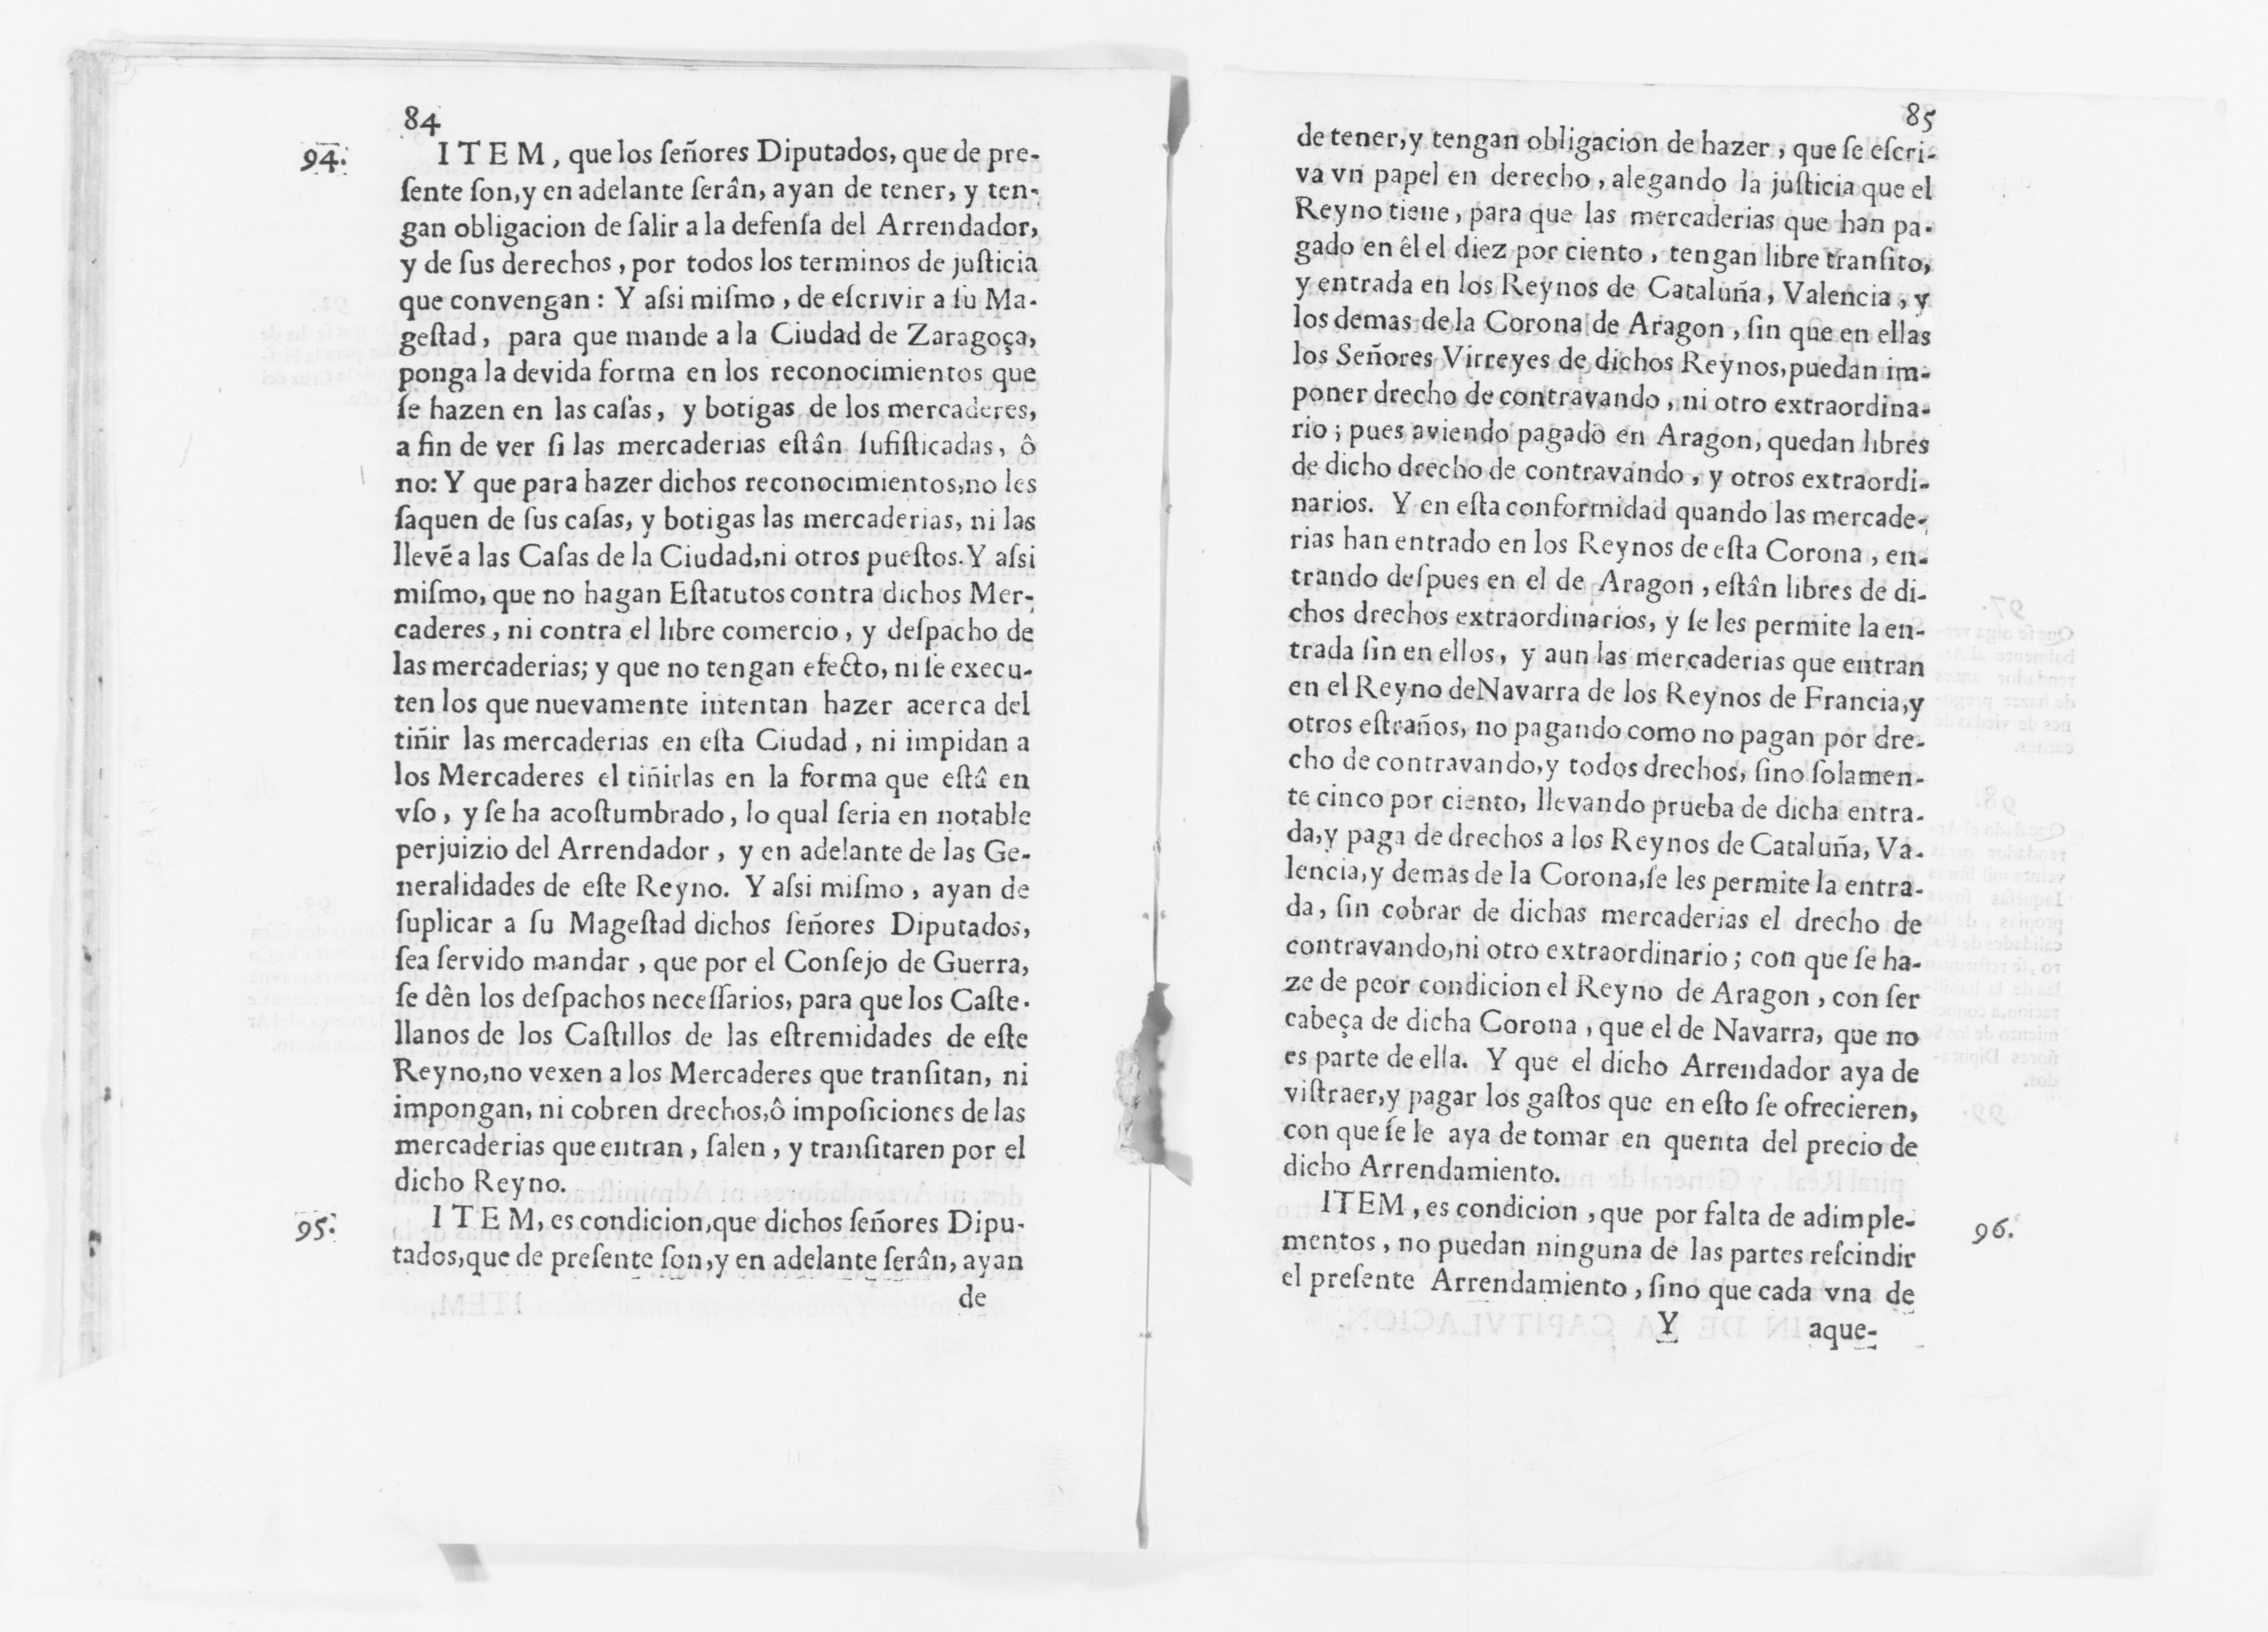 84
94.
ITEM, que los ſeñores Diputados, que de pre-
ſente ſon, y en adelante ſerân, ayan de tener, y ten-
gan obligacion de ſalir a la defenſa del Arrendador,
y de ſus derechos, por todos los terminos de juſticia
que convengan: Y aſsi miſmo, de eſcrivir a ſu Ma-
geſtad, para que mande a la Ciudad de Zaragoça,
ponga la devida forma en los reconocimientos que
ſe hazen en las caſas, y botigas de los mercaderes,
a fin de ver ſi las mercaderias eſtân ſufiſticadas, ô
no: Y que para hazer dichos reconocimientos, no les
ſaquen de ſus caſas, y botigas las mercaderias, ni las
llevẽ a las Caſas de la Ciudad, ni otros pueſtos. Y aſsi
miſmo, que no hagan Eſtatutos contra dichos Mer-
caderes, ni contra el libre comercio, y deſpacho de
las mercaderias; y que no tengan efecto, ni ſe execu-
ten los que nuevamente intentan hazer acerca del
tiñir las mercaderias en eſta Ciudad, ni impidan a
los Mercaderes el tiñirlas en la forma que eſtâ en
vſo, y ſe ha acoſtumbrado, lo qual ſeria en notable
perjuizio del Arrendador, y en adelante de las Ge-
neralidades de eſte Reyno. Y aſsi miſmo, ayan de
ſuplicar a ſu Mageſtad dichos ſeñores Diputados,
ſea ſervido mandar, que por el Conſejo de Guerra,
ſe dên los deſpachos neceſſarios, para que los Caſte-
llanos de los Caſtillos de las eſtremidades de eſte
Reyno, no vexen a los Mercaderes que tranſitan, ni
impongan, ni cobren drechos, ô impoſiciones de las
mercaderias que entran, ſalen, y tranſitaren por el
dicho Reyno.
95.
ITEM, es condicion, que dichos ſeñores Dipu-
tados, que de preſente ſon, y en adelante ſerân, ayan
de
85
de tener, y tengan obligacion de hazer, que ſe eſcri-
va vn papel en derecho, alegando la juſticia que el
Reyno tiene, para que las mercaderias que han pa-
gado en êl el diez por ciento, tengan libre tranſito,
y entrada en los Reynos de Cataluña, Valencia, y
los demas de la Corona de Aragon, ſin que en ellas
los Señores Virreyes de dichos Reynos, puedan im-
poner drecho de contravando, ni otro extraordina-
rio; pues aviendo pagado en Aragon, quedan libres
de dicho drecho de contravando, y otros extraordi-
narios. Y en eſta conformidad quando las mercade-
rias han entrado en los Reynos de eſta Corona, en-
trando deſpues en el de Aragon, eſtân libres de di-
chos drechos extraordinarios, y ſe les permite la en-
trada ſin en ellos, y aun las mercaderias que entran
en el Reyno de Navarra de los Reynos de Francia, y
otros eſtraños, no pagando como no pagan por dre-
cho de contravando, y todos drechos, ſino ſolamen-
te cinco por ciento, llevando prueba de dicha entra-
da, y paga de drechos a los Reynos de Cataluña, Va-
lencia, y demàs de la Corona, ſe les permite la entra-
da, ſin cobrar de dichas mercaderias el drecho de
contravando, ni otro extraordinario; con que ſe ha-
ze de peor condicion el Reyno de Aragon, con ſer
cabeça de dicha Corona, que el de Navarra, que no
es parte de ella. Y que el dicho Arrendador aya de
viſtraer, y pagar los gaſtos que en eſto ſe ofrecieren,
con que ſe le aya de tomar en quenta del precio de
dicho Arrendamiento.
96.
ITEM, es condicion, que por falta de adimple-
mentos, no puedan ninguna de las partes reſcindir
el preſente Arrendamiento, ſino que cada vna de
Y aque-